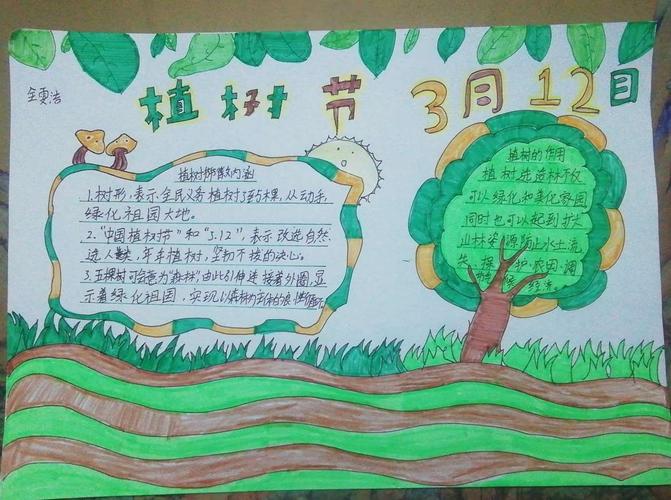 植树节 3月12日
植树节徽文内涵
1.树形,表示全民义务植树3到5棵,从动手,
绿化祖国大地。
2."中国植树节"和"3.12",表示改造自然,
造人类,年年植树,坚韧不拔的决心。
3.五棵树可会意为"森林"由此引伸连接着外圈,显
示着绿化祖国,实现以森林为主体的
植树的作用
植树造造林不仅
可以绿化和美化家园
同时也可以起到扩大
山林资源防止水土流
经济